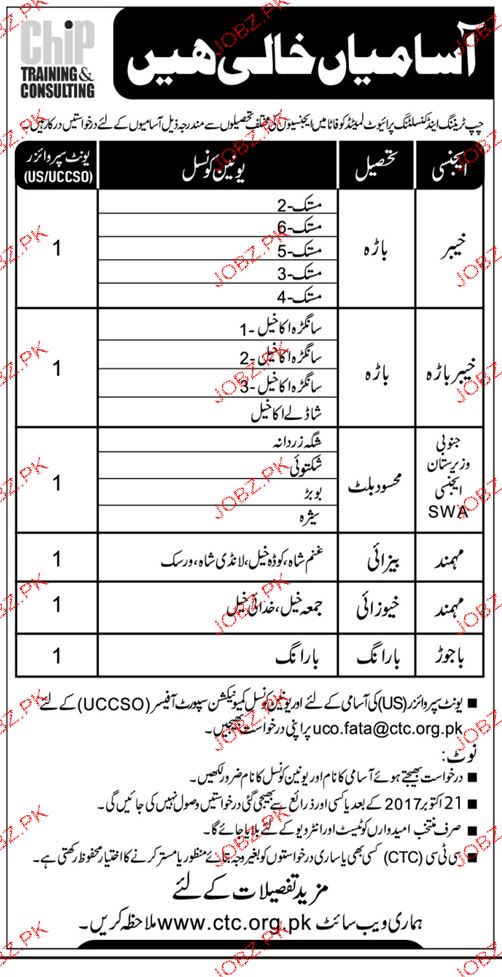 ChiP
TRAINING &
CONSULTING
آسامیاں خالی ہیں
چپ ٹریننگ اینڈ کنسلٹنگ پرائیوٹ لمیٹڈ کو فاٹا میں ایجنسیوں کی مختلف تحصیلوں سے مندرجہ ذیل آسامیوں کے لئے درخواستیں درکار ہیں۔
ایجنسی تحصیل یونین کونسل یونٹ سپروائزر (US/UCCSO)
خیبر باڑہ 1
مستک-2
مستک-6
مستک-5
مستک-3
مستک-4
خیبر باڑہ باڑہ 1
سانگڑہ اکاخیل -1
سانگڑہ اکاخیل -2
سانگڑہ اکاخیل -3
شاڈلے اکاخیل
جنوبی وزیرستان ایجنسی SWA محسود بلٹ 1
شگہ زردانہ
شکتوئی
بوبڑ
سیڑہ
مہمند بیزائی غنم شاہ، کوڈہ خیل، لانڈی شاہ، ورسک 1
مہمند خیوزائی جمعہ خیل، خدائی خیل 1
باجوڑ بارانگ بارانگ 1
■ یونٹ سپروائزر (US) کی آسامی کے لئے اور یونین کونسل کمیونیکشن سپورٹ آفیسر (UCCSO) کے لئے
uco.fata@ctc.org.pk پر اپنی درخواست بھیجیں۔
نوٹ:
■ درخواست بھیجتے ہوئے آسامی کا نام اور یونین کونسل کا نام ضرور لکھیں۔
■ 21 اکتوبر 2017 کے بعد یا کسی اور ذرائع سے بھیجی گئی درخواستیں وصول نہیں کی جائیں گی۔
■ صرف منتخب امیدواروں کو ٹیسٹ اور انٹرویو کے لئے بلایا جائے گا۔
■ سی ٹی سی (CTC) کسی بھی یا ساری درخواستوں کو بغیر وجہ بتائے منظور یا مسترد کرنے کا اختیار محفوظ رکھتی ہے۔
مزید تفصیلات کے لئے
ہماری ویب سائٹ www.ctc.org.pk ملاحظہ کریں۔
JOBZ.PK